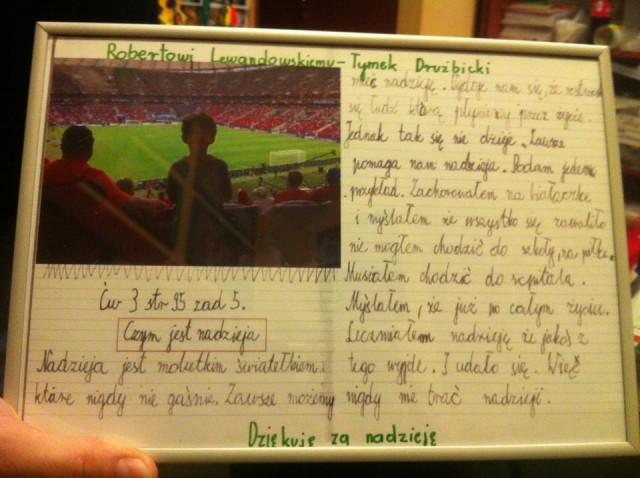 Robertowi Lewandowskiemu - Tymek Drużbicki
Ćw 3 str 95 zad 5.
Czym jest nadzieja
Nadzieja jest malutkim światełkiem
które nigdy nie gaśnie. Zawsze możemy
mieć nadzieję. Wydaje nam się, że
się łódź którą płyniemy przez życie.
Jednak tak się nie dzieje. Zawsze
pomaga nam nadzieja. Podam jeden
przykład. Zachorowałem na białaczkę
i myślałem że wszystko się zawaliło
nie mogłem chodzić do szkoły, na piłkę.
Musiałem chodzić do szpitala.
Myślałem, że już po całym życiu.
Lecz miałem nadzieję że jakoś z
tego wyjdę. I udało się. Więc
nigdy nie trać nadzieji.
Dziękuję za nadzieję